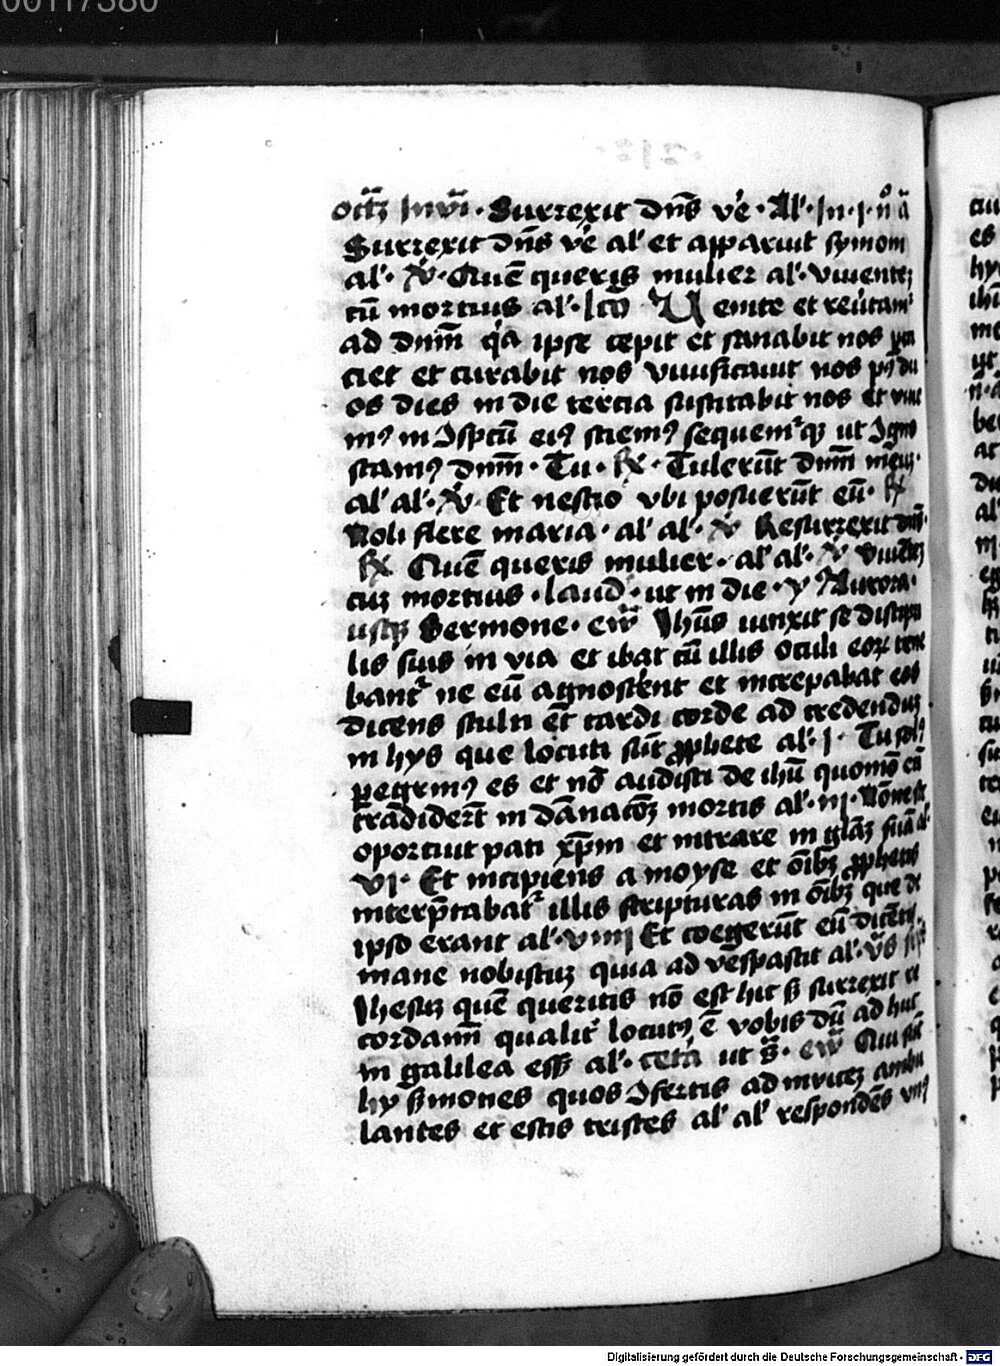 00117380
octꝫ Inviᷓ. Surrexit dn̄s ve᷑. Al᷑. In .j. n̊ aᷓ
Surrexit dn̄s ve᷑ al᷑ et apparuit symoni
al᷑. ℣. Quē queris mulier al᷑. viuentē
cū mortuis al᷑. lcō Uenite et reu᷑tam᷑
ad dnm̄ q᷑a ipse cepit et sanabit nos
ciet et curabit nos viuificauit nos pꝰ du
os dies in die tercia suscitabit nos et viue
mꝰ in ꝯspcū eiꝰ sciemꝰ sequem᷑qꝫ ut ꝯgno
scamꝰ dnm̄. Tu. ℟. Tulerūt dnm̄ meū.
al᷑ al᷑. ℣. Et nescio vbi posuerūt eū. ℟
Noli flere maria. al᷑ al᷑. ℣ Resurrexit dn̄s.
℟ Quē queris mulier. al᷑ al᷑. ℣ viuētē
cuꝫ mortuis. laud᷑. ut in die. y Aurora.
usqꝫ Sermone. ew̄ Jhūs iunxit se discipu
lis suis in via et ibat cū illis oculi eoꝝ tene
bant᷑ ne eū agnoscent et increpabat eos
dicens stulti et̄ tardi corde ad credenduꝫ
in hys que locuti sūt ꝓphete al᷑. j. Tu solꝰ
pegrinꝰ es et nō audisti de ihū quomō eū
tradidert̄ in dānacōꝫ mortis al᷑. iij. Nōne sic
oportuit pati xp̄m et intrare in gl̄aꝫ suā al᷑
vj. Et incipiens a moyse et oībꝫ ꝓphetis
interp̄tabat᷑ illis scripturas in oībꝫ que de
ipso erant al᷑. viiij Et coegerūt eū dicētes.
mane nobiscuꝫ quia ad vespascit al᷑. v̄s
Jhesuꝫ quē queritis nō est hic sꝫ surrexit re
cordamī qualit᷑ locutꝰ ē vobis dū ad huc
in galilea eſſꝫ al᷑. ceta᷑ ut s̄. ew̄ Qui sūt
hy s̄mones quos ꝯfertis ad inuiceꝫ ambu
lantes et estis tristes al᷑ al᷑ respondēs vnꝰ
Digitalisierung gefördert durch die Deutsche Forschungsgemeinschaft - DFG